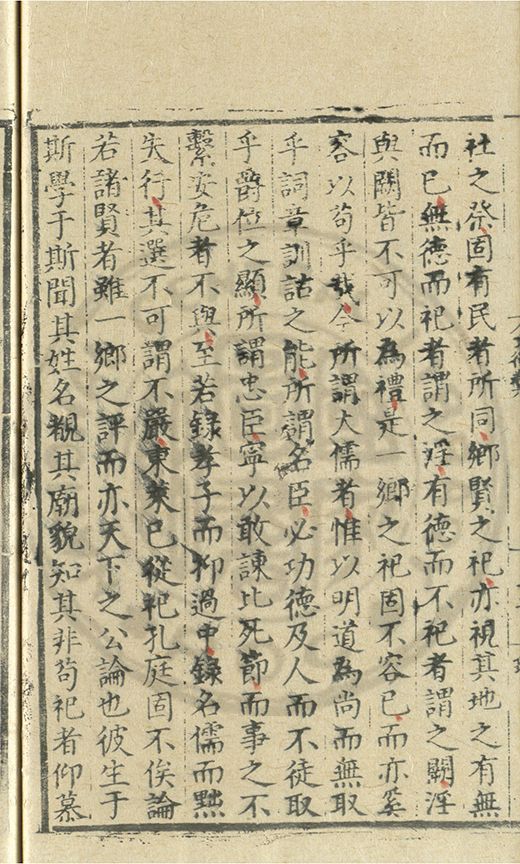 社之祭固有民者所同鄉賢之祀亦視其地之有無
而已無德而祀者謂之淫有德而不祀者謂之闕淫
與闕皆不可以為禮是一鄉之祀固不容已而亦奚
容以苟乎哉今所謂大儒者惟以明道為尚而無取
乎詞章訓詁之能所謂名臣必功德及人而不徒取
乎爵位之顯所謂忠臣寧以敢諫比死節而事之不
繫安危者不與至若錄孝子而抑過中錄名儒而黜
失行其選不可謂不嚴東萊已從祀孔庭固不俟論
若諸賢者雖一鄉之評而亦天下之公論也彼生于
斯學于斯聞其姓名觀其廟貌知其非苟祀者仰慕